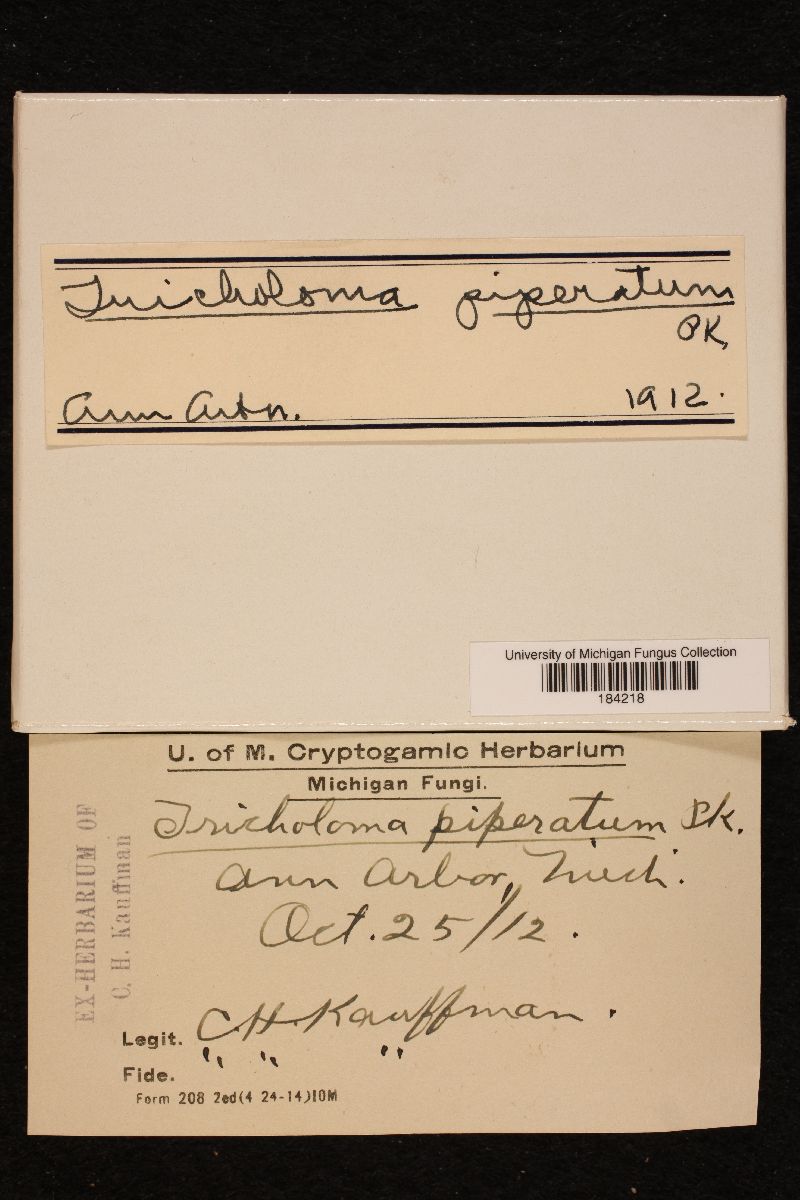 Tricholoma piperatum
PK,
Ann Arbor.
1912.
University of Michigan Fungus Collection
184218
U. of M. Cryptogamic Herbarium
Michigan Fungi.
Tricholoma piperatum Pk.
Ann Arbor, Mich.
Oct. 25/12.
EX-HERBARIUM OF
C. H. Kauffman
Legit. C.H. Kauffman.
Fide. " " "
Form 208 2ed(4 24-14)10M